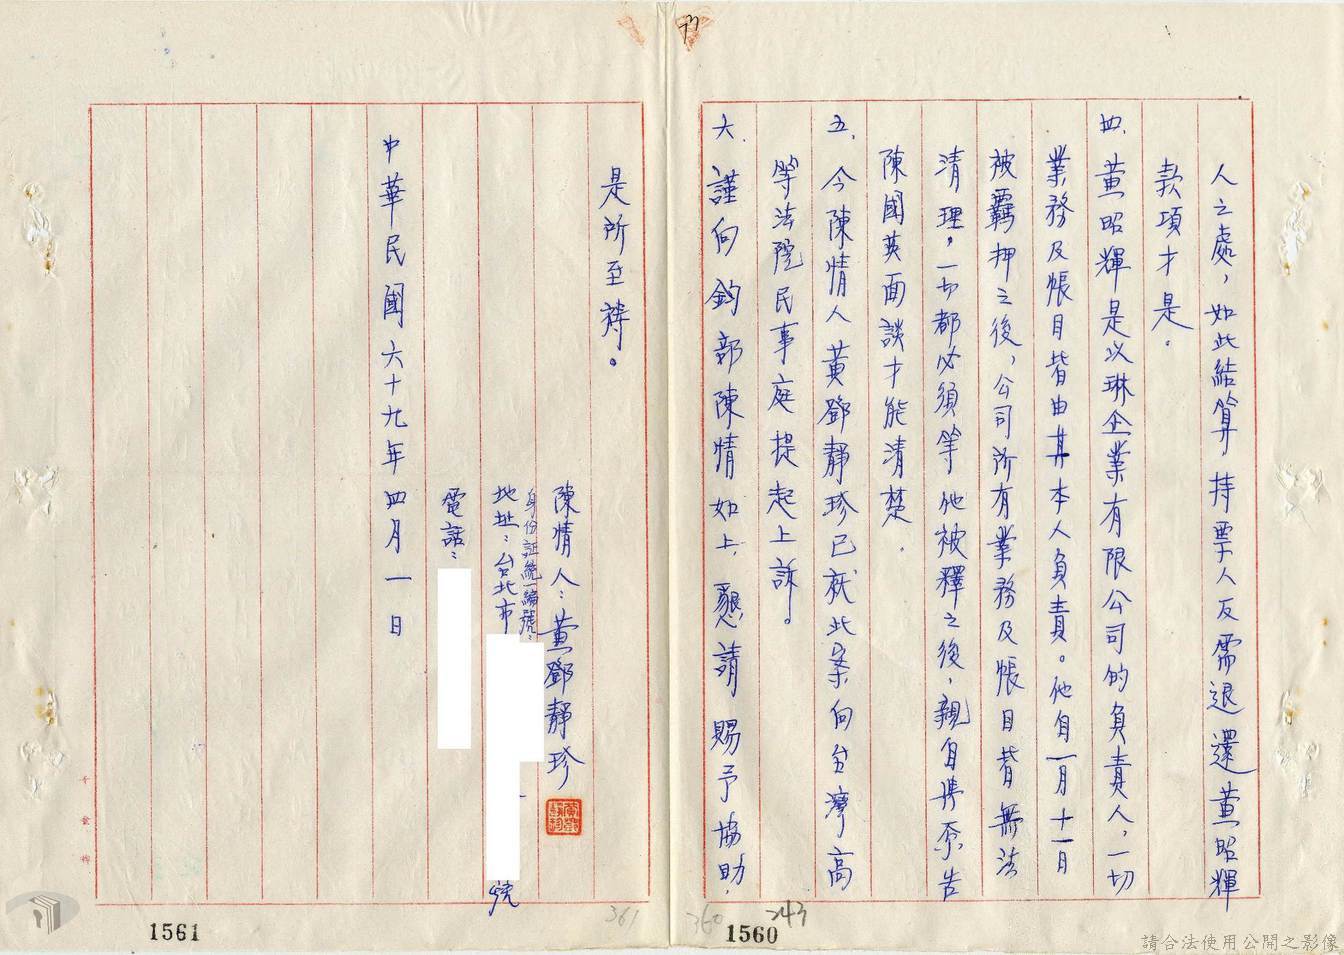 人之處，如此結算持票人反需退還黃昭輝
款項才是。
四、黃昭輝是以琳企業有限公司的負責人，一切
業務及帳目皆由其本人負責。他自一月十一日
被羈押之後，公司所有業務及帳目皆無法
清理，一切都必須等他被釋之後，親自與原告
陳國英面談才能清楚．
五、今陳情人黃鄧靜珍已就此案向台灣高
等法院民事庭提起上訴。
六．謹向 鈞部陳情如上．懇請 賜予協助．
是所至禱。
陳情人：黃鄧靜珍
身份証統一編號：
地址：台北市
號
電話：
中華民國六十九年四月一日
1561
361
360
243
1560
請合法使用公開之影像